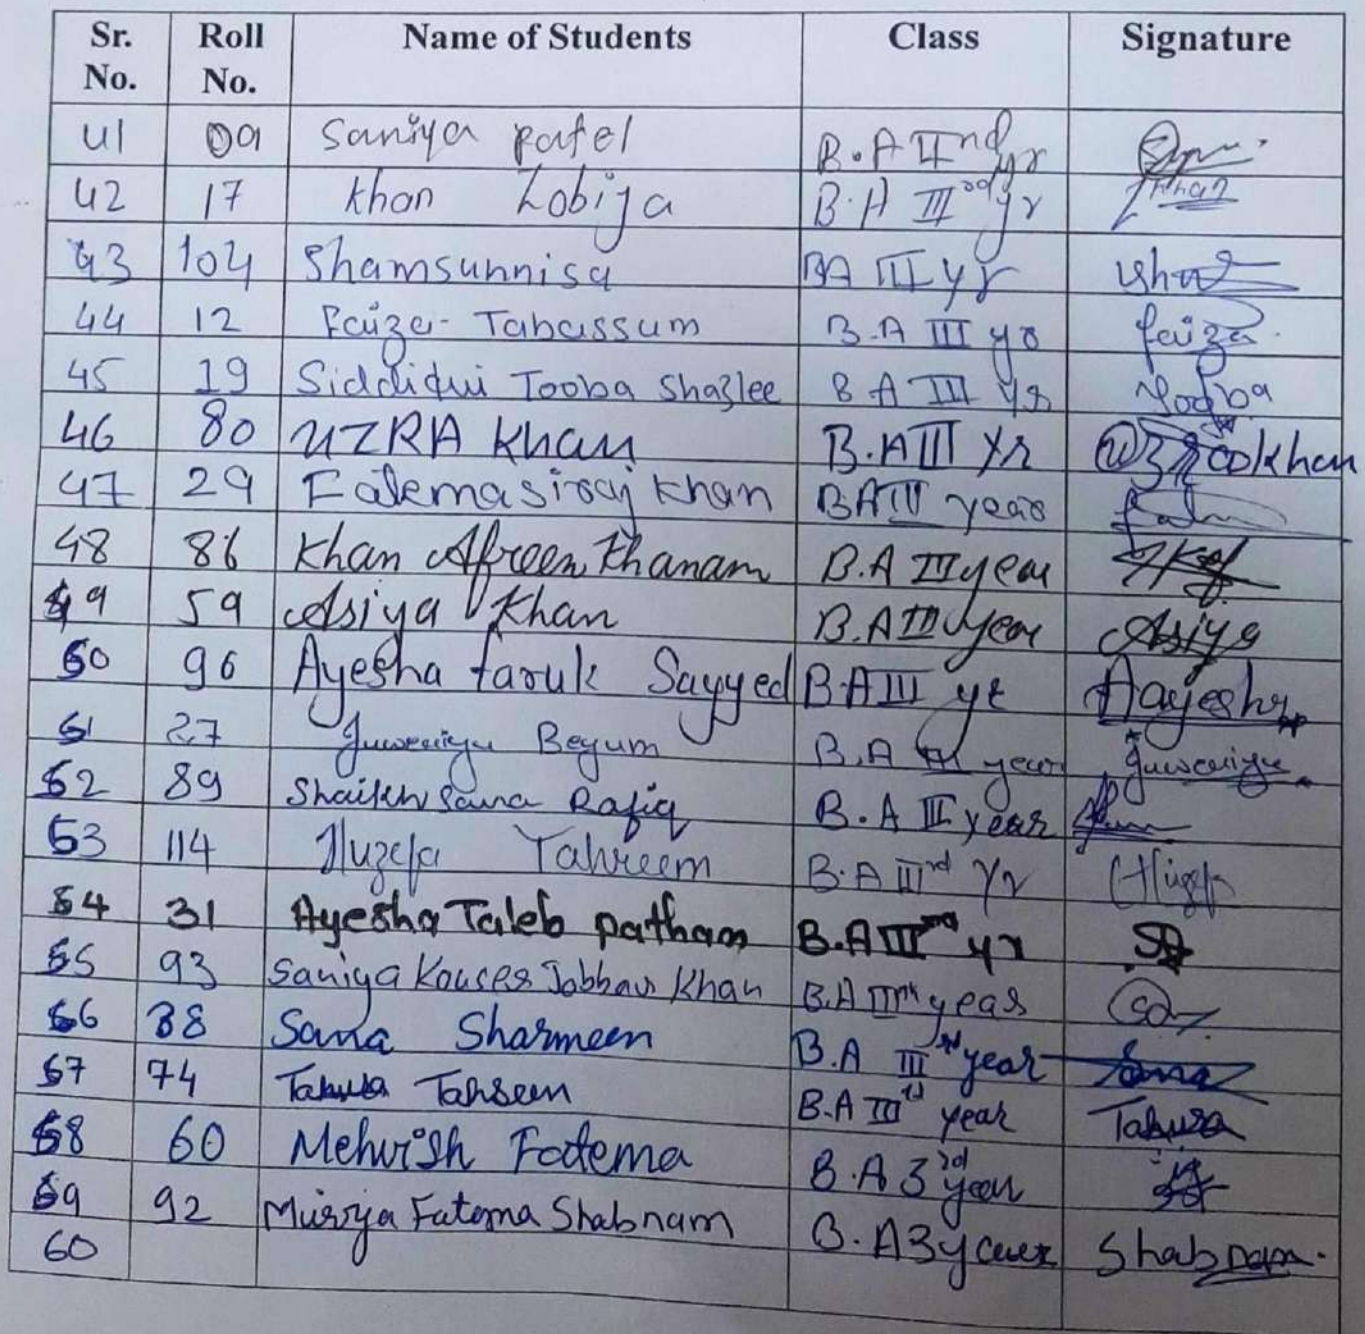 Sr. No. Roll No. Name of Students Class Signature
41 09 Saniya Patel B.A IInd yr
42 17 Khan Zobiya B.A IIIrd yr Khan
43 104 Shamsunnisa BA III yr
44 12 Faiza Tabassum B.A III yr faiza
45 19 Siddiqui Tooba Shazlee B A III yr Tooba
46 80 UZRA Khan B.A III Yr
47 29 Fatema siraj Khan B.A III year
48 86 Khan Afreen Khanam B.A III year
49 59 Asiya Khan B.A III year Asiya
50 96 Ayesha faruk Sayyed B.A III yr Aayesha
51 27 Juweriya Begum B.A III year Juweriya
52 89 Shaikh Sana Rafiq B.A III year
53 114 Huzefa Tahreem B.A IIIrd Yr
54 31 Ayesha Taleb pathan B.A IIIrd yr
55 93 Saniya Kouser Jabbar Khan B.A III year
56 38 Sana Sharmeen B.A IIIrd year Sana
57 74 Tahura Tahseen B.A III year Tahura
58 60 Mehvish Fatema B.A 3rd year
59 92 Fatema Shabnam B.A 3 year Shabnam
60